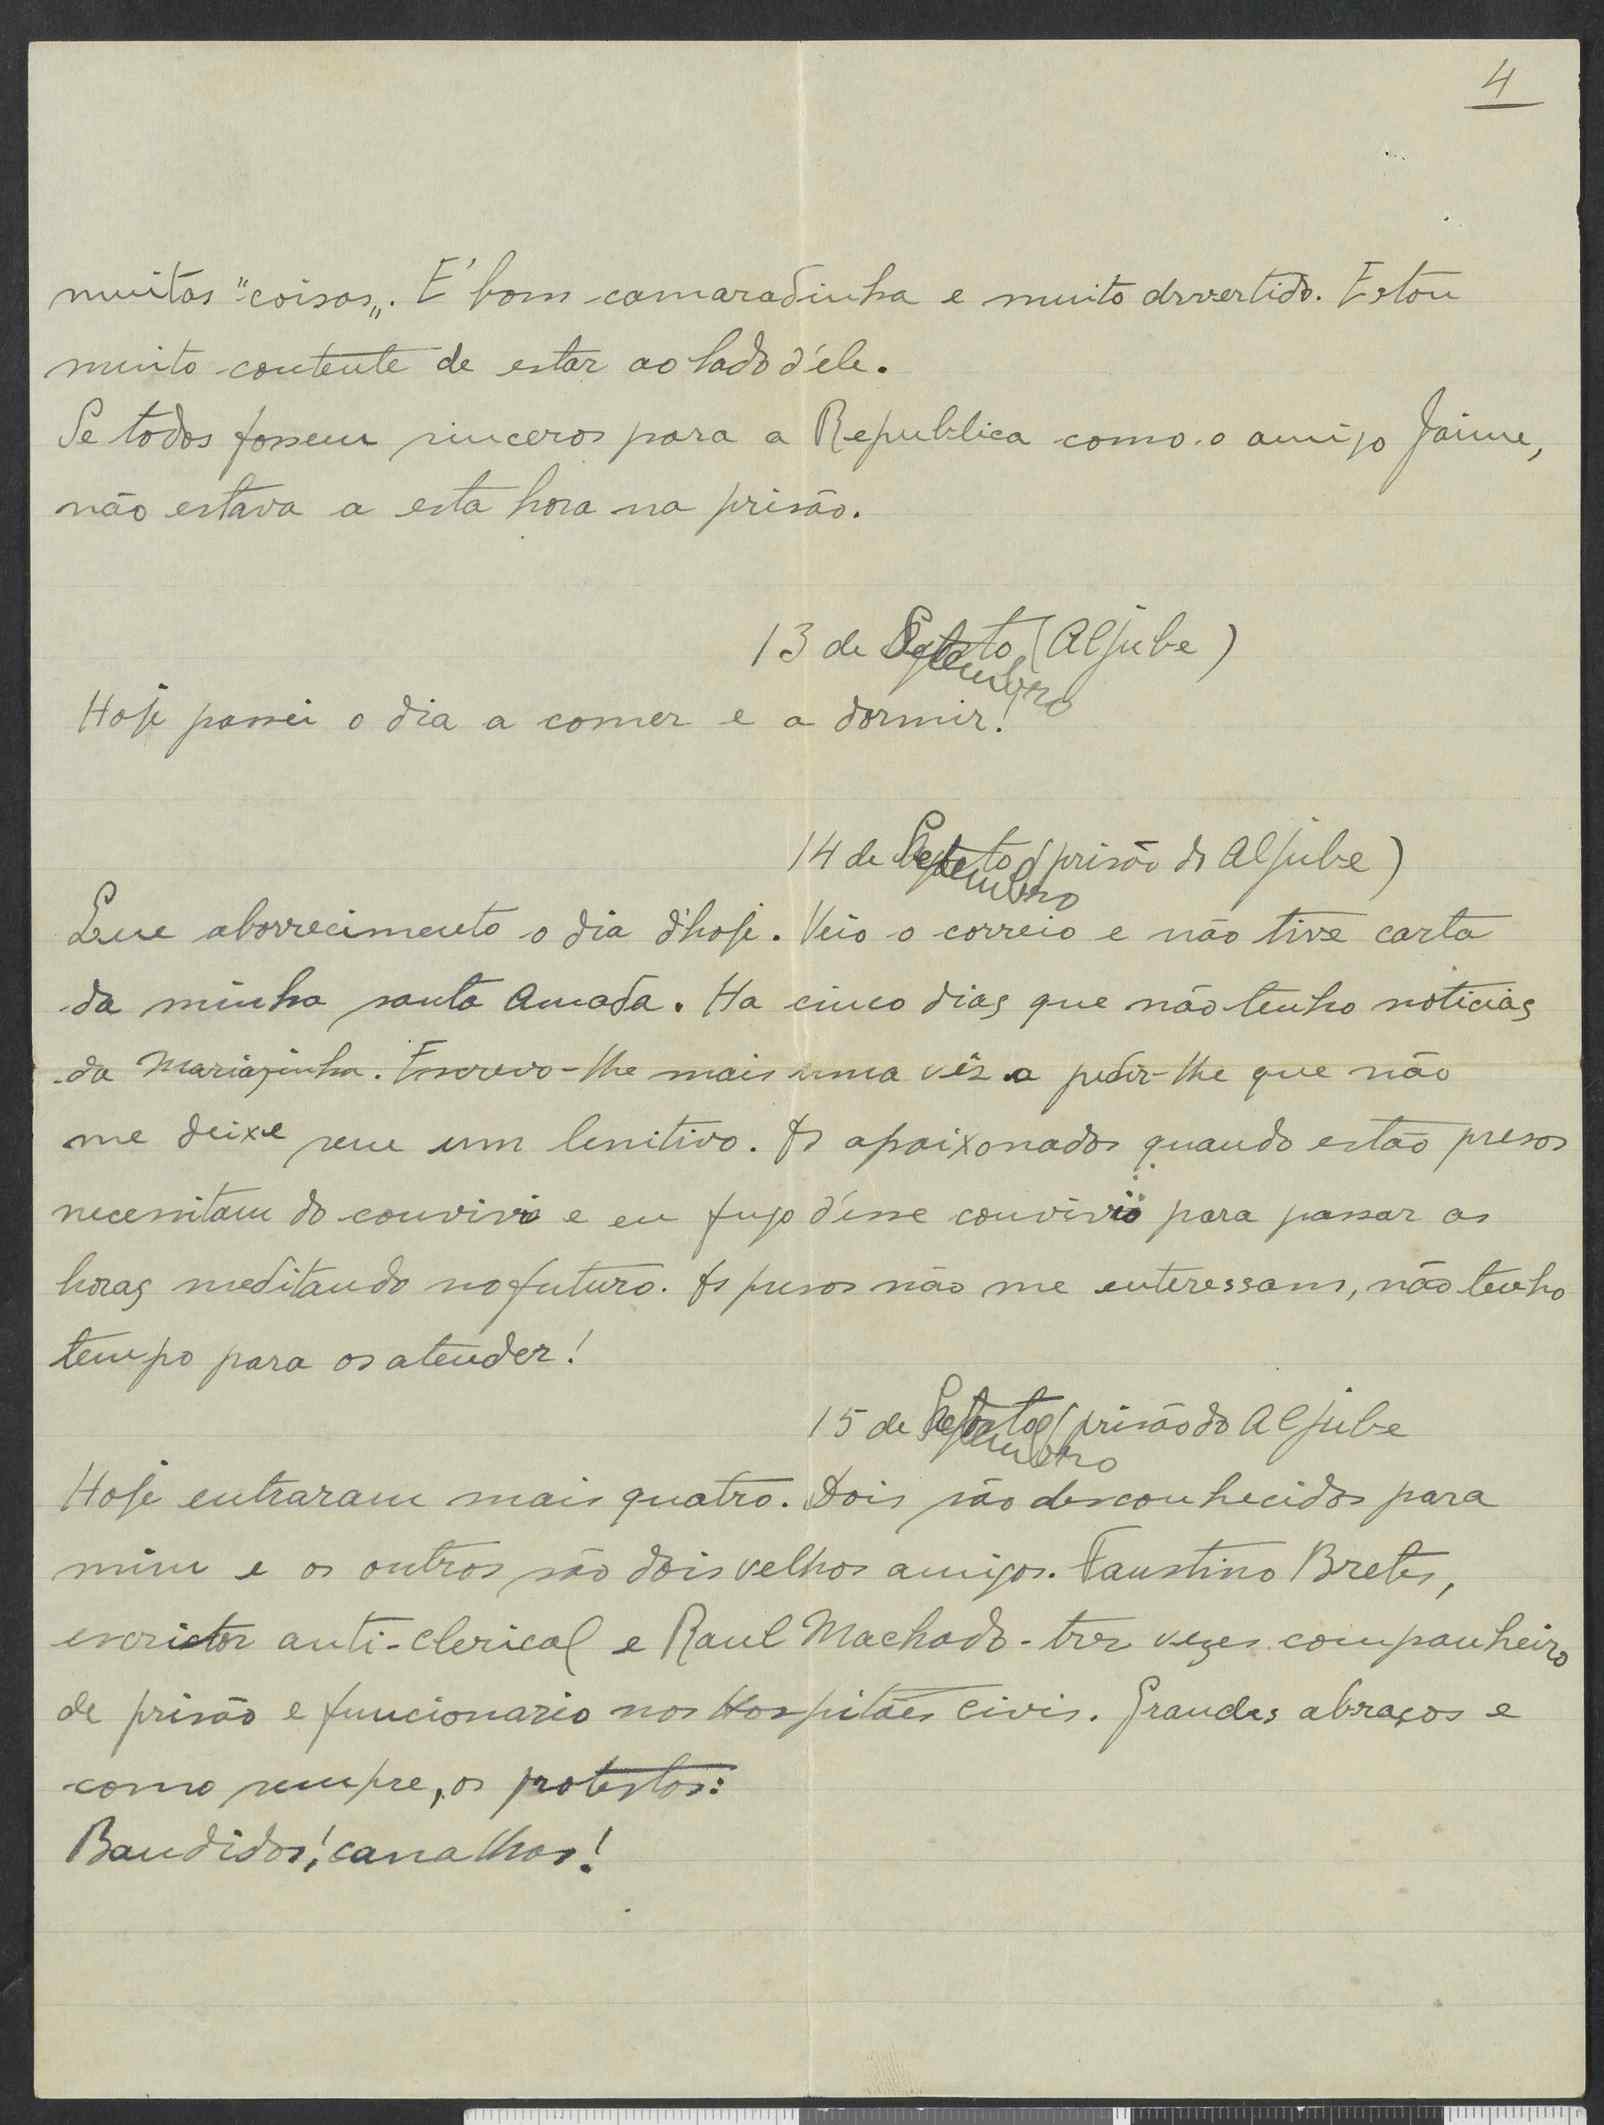 4
muitas "coisas„. E' bom camaradinha e muito divertido. Estou
muito contente de estar ao lado d'éle.
Se todos fossem sinceros para a Republica como o amigo Jaime,
não estava a esta hora na prisão.
13 de Setembro (Aljube)
Hoje passei o dia a comer e a dormir!
14 de Setembro (prisão do Aljube)
Que aborrecimento o dia d'hoje. Veio o correio e não tive carta
da minha santa Amada. Ha cinco dias que não tenho noticias
da Mariazinha. Escrevo-lhe mais uma vês a pedir-lhe que não
me deixe sem um lenitivo. Os apaixonados quando estão presos
necessitam do convivio e eu fujo d'esse convivio para passar as
horas meditando no futuro. Os presos não me enteressam, não tenho
tempo para os atender!
15 de Setembro (prisão do Aljube
Hoje entraram mais quatro. Dois são desconhecidos para
mim e os outros são dois velhos amigos. Faustino Bretes,
escrictor anti-clerical e Raul Machado - trez vezes companheiro
de prisão e funcionario nos Hospitães civis. Grandes abraços e
como sempre, os protestos:
Bandidos! canalhas!